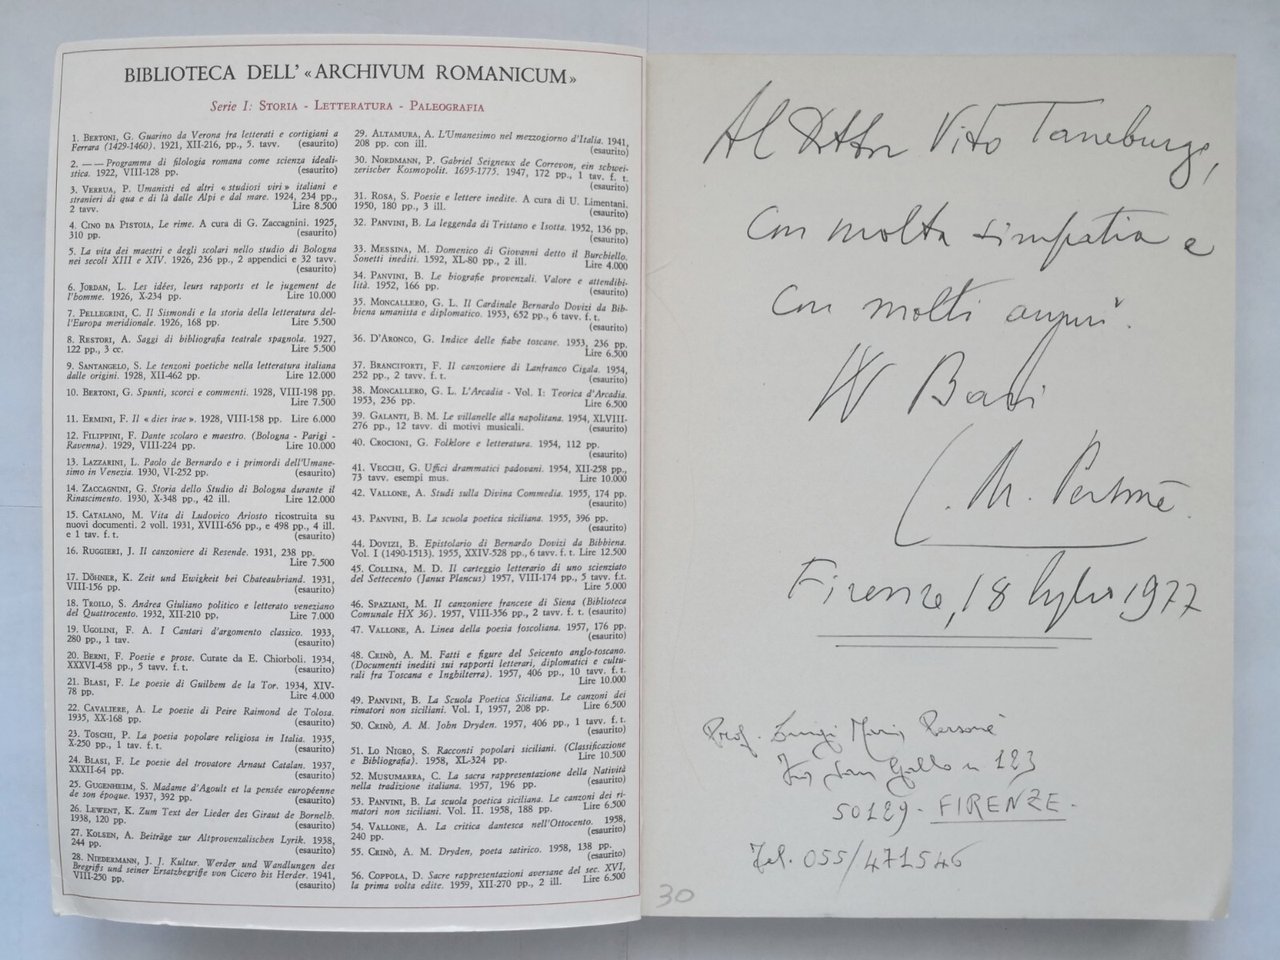 BIBLIOTECA DELL' «ARCHIVUM ROMANICUM»
Serie I: STORIA - LETTERATURA - PALEOGRAFIA
1. BERTONI, G. Guarino da Verona fra letterati e cortigiani a
Ferrara (1429-1460). 1921, XII-216, pp., 5. tavv. (esaurito)
2. —— Programma di filologia romana come scienza ideali-
stica. 1922, VIII-128 pp. (esaurito)
3. VERRUA, P. Umanisti ed altri «studiosi viri» italiani e
stranieri di qua e di là dalle Alpi e dal mare. 1924, 234 pp.,
2 tavv. Lire 8.500
4. CINO DA PISTOIA, Le rime. A cura di G. Zaccagnini. 1925,
310 pp. (esaurito)
5. La vita dei maestri e degli scolari nello studio di Bologna
nei secoli XIII e XIV. 1926, 236 pp., 2 appendici e 32 tavv.
(esaurito)
6. JORDAN, L. Les idées, leurs rapports et le jugement de
l'homme. 1926, X-234 pp. Lire 10.000
7. PELLEGRINI, C. Il Sismondi e la storia della letteratura del-
l'Europa meridionale. 1926, 168 pp. Lire 5.500
8. RESTORI, A. Saggi di bibliografia teatrale spagnola. 1927,
122 pp., 3 cc. Lire 5.500
9. SANTANGELO, S. Le tenzoni poetiche nella letteratura italiana
dalle origini. 1928, XII-462 pp. Lire 12.000
10. BERTONI, G. Spunti, scorci e commenti. 1928, VIII-198 pp.
Lire 7.500
11. ERMINI, F. Il «dies irae». 1928, VIII-158 pp. Lire 6.000
12. FILIPPINI, F. Dante scolaro e maestro. (Bologna - Parigi -
Ravenna). 1929, VIII-224 pp. Lire 10.000
13. LAZZARINI, L. Paolo de Bernardo e i primordi dell'Umane-
simo in Venezia. 1930, VI-252 pp. (esaurito)
14. ZACCAGNINI, G. Storia dello Studio di Bologna durante il
Rinascimento. 1930, X-348 pp., 42 ill. Lire 12.000
15. CATALANO, M. Vita di Ludovico Ariosto ricostruita su
nuovi documenti. 2 voll. 1931, XVIII-656 pp., e 498 pp., 4 ill.
e 1 tav. f. t. (esaurito)
16. RUGGIERI, J. Il canzoniere di Resende. 1931, 238 pp.
Lire 7.500
17. DÖHNER, K. Zeit und Ewigkeit bei Chateaubriand. 1931,
VIII-156 pp. (esaurito)
18. TROILO, S. Andrea Giuliano politico e letterato veneziano
del Quattrocento. 1932, XII-210 pp. Lire 7.000
19. UGOLINI, F. A. I Cantari d'argomento classico. 1933,
280 pp., 1 tav. (esaurito)
20. BERNI, F. Poesie e prose. Curate da E. Chiorboli. 1934,
XXXVI-458 pp., 5 tavv. f. t. (esaurito)
21. BLASI, F. Le poesie di Guilhem de la Tor. 1934, XIV-
78 pp. Lire 4.000
22. CAVALIERE, A. Le poesie di Peire Raimond de Tolosa.
1935, XX-168 pp. (esaurito)
23. TOSCHI, P. La poesia popolare religiosa in Italia. 1935,
X-250 pp., 1 tav. f. t. (esaurito)
24. BLASI, F. Le poesie del trovatore Arnaut Catalan. 1937,
XXXII-64 pp. (esaurito)
25. GUGENHEIM, S. Madame d'Agoult et la pensée européenne
de son époque. 1937, 392 pp. (esaurito)
26. LEWENT, K. Zum Text der Lieder des Giraut de Bornelh.
1938, 120 pp. (esaurito)
27. KOLSEN, A. Beiträge zur Altprovenzalischen Lyrik. 1938,
244 pp. (esaurito)
28. NIEDERMANN, J. J. Kultur. Werder und Wandlungen des
Bregriffs und seiner Ersatzbegriffe von Cicero bis Herder. 1941,
VIII-250 pp. (esaurito)
29. ALTAMURA, A. L'Umanesimo nel mezzogiorno d'Italia. 1941,
208 pp. con ill. (esaurito)
30. NORDMANN, P. Gabriel Seigneux de Correvon, ein schwei-
zerischer Kosmopolit. 1695-1775. 1947, 172 pp., 1 tav. f. t.
(esaurito)
31. ROSA, S. Poesie e lettere inedite. A cura di U. Limentani.
1950, 180 pp., 3 ill. (esaurito)
32. PANVINI, B. La leggenda di Tristano e Isotta. 1952, 136 pp.
(esaurito)
33. MESSINA, M. Domenico di Giovanni detto il Burchiello.
Sonetti inediti. 1592, XL-80 pp., 2 ill. Lire 4.000
34. PANVINI, B. Le biografie provenzali. Valore e attendibi-
lità. 1952, 166 pp. (esaurito)
35. MONCALLERO, G. L. Il Cardinale Bernardo Dovizi da Bib-
biena umanista e diplomatico. 1953, 652 pp., 6 tavv. f. t.
(esaurito)
36. D'ARONCO, G. Indice delle fiabe toscane. 1953, 236 pp.
Lire 6.500
37. BRANCIFORTI, F. Il canzoniere di Lanfranco Cigala. 1954,
252 pp., 2 tavv. f. t. (esaurito)
38. MONCALLERO, G. L. L'Arcadia - Vol. I: Teorica d'Arcadia.
1953, 236 pp. Lire 6.500
39. GALANTI, B. M. Le villanelle alla napolitana. 1954, XLVIII-
276 pp., 12 tavv. di motivi musicali. (esaurito)
40. CROCIONI, G. Folklore e letteratura. 1954, 112 pp.
(esaurito)
41. VECCHI, G. Uffici drammatici padovani. 1954, XII-258 pp.,
73 tavv. esempi mus. Lire 10.000
42. VALLONE, A. Studi sulla Divina Commedia. 1955, 174 pp.
(esaurito)
43. PANVINI, B. La scuola poetica siciliana. 1955, 396 pp.
(esaurito)
44. DOVIZI, B. Epistolario di Bernardo Dovizi da Bibbiena.
Vol. I (1490-1513). 1955, XXIV-528 pp., 6 tavv. f. t. Lire 12.500
45. COLLINA, M. D. Il carteggio letterario di uno scienziato
del Settecento (Janus Plancus) 1957, VIII-174 pp., 5 tavv. f.t.
Lire 5.000
46. SPAZIANI, M. Il canzoniere francese di Siena (Biblioteca
Comunale HX 36). 1957, VIII-356 pp., 2 tavv. f. t. (esaurito)
47. VALLONE, A. Linea della poesia foscoliana. 1957, 176 pp.
(esaurito)
48. CRINÒ, A. M. Fatti e figure del Seicento anglo-toscano.
(Documenti inediti sui rapporti letterari, diplomatici e cultu-
rali fra Toscana e Inghilterra). 1957, 406 pp., 10 tavv. f. t.
Lire 10.000
49. PANVINI, B. La Scuola Poetica Siciliana. Le canzoni dei
rimatori non siciliani. Vol. I, 1957, 208 pp. Lire 6.500
50. CRINÒ, A. M. John Dryden. 1957, 406 pp., 1 tavv. f. t.
(esaurito)
51. LO NIGRO, S. Racconti popolari siciliani. (Classificazione
e Bibliografia). 1958, XL-324 pp. Lire 10.500
52. MUSUMARRA, C. La sacra rappresentazione della Natività
nella tradizione italiana. 1957, 196 pp. (esaurito)
53. PANVINI, B. La scuola poetica siciliana. Le canzoni dei ri-
matori non siciliani. Vol. II. 1958, 188 pp. Lire 6.500
54. VALLONE, A. La critica dantesca nell'Ottocento. 1958,
240 pp. (esaurito)
55. CRINÒ, A. M. Dryden, poeta satirico. 1958, 138 pp.
(esaurito)
56. COPPOLA, D. Sacre rappresentazioni aversane del sec. XVI,
la prima volta edite. 1959, XII-270 pp., 2 ill. Lire 6.500
Al Dottor Vito Taneburgo,
con molta simpatia e
con molti auguri.
W Bari
L. M. Personè.
Firenze, 18 luglio 1977
Prof. Luigi Maria Personè
Via San Gallo n 123
50129 - FIRENZE.
Tel. 055/471546
30